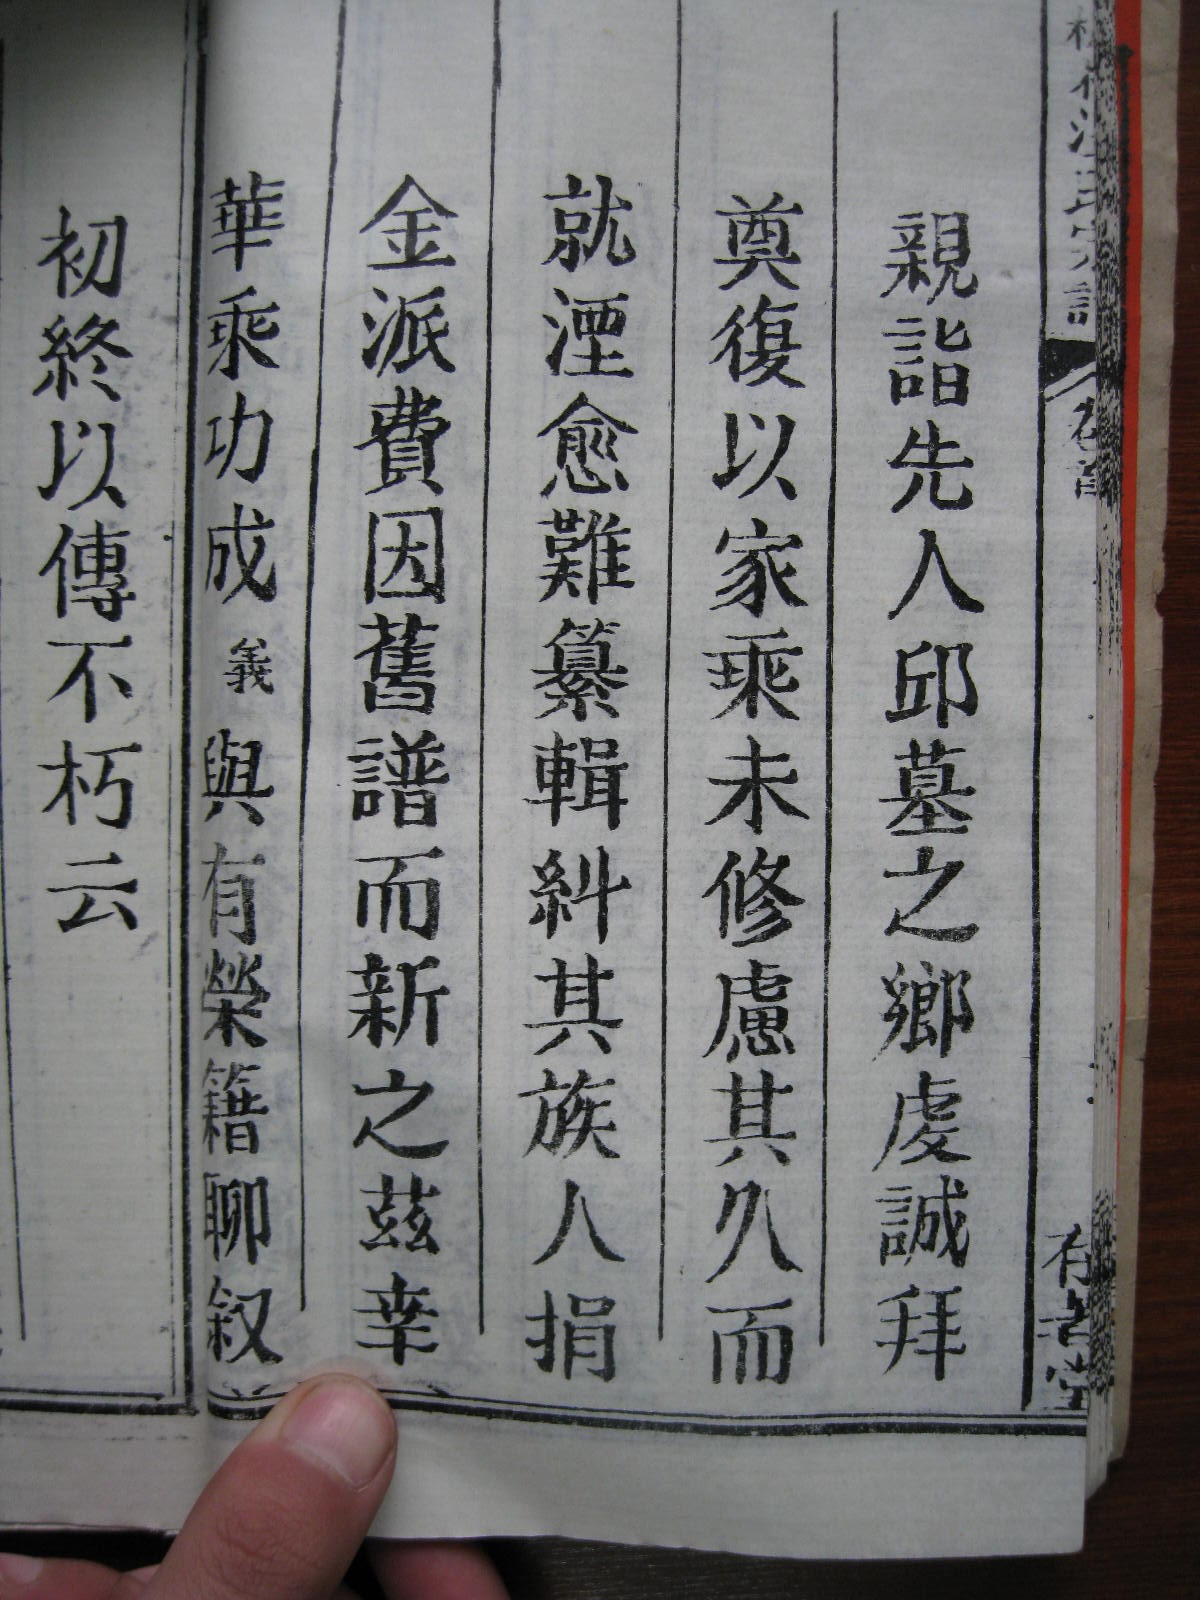 親詣先人邱墓之鄉虔誠拜
奠復以家乘未修慮其久而
就湮愈難纂輯糾其族人捐
金派費因舊譜而新之茲幸
華乘功成義與有榮籍聊叙
初終以傳不朽云